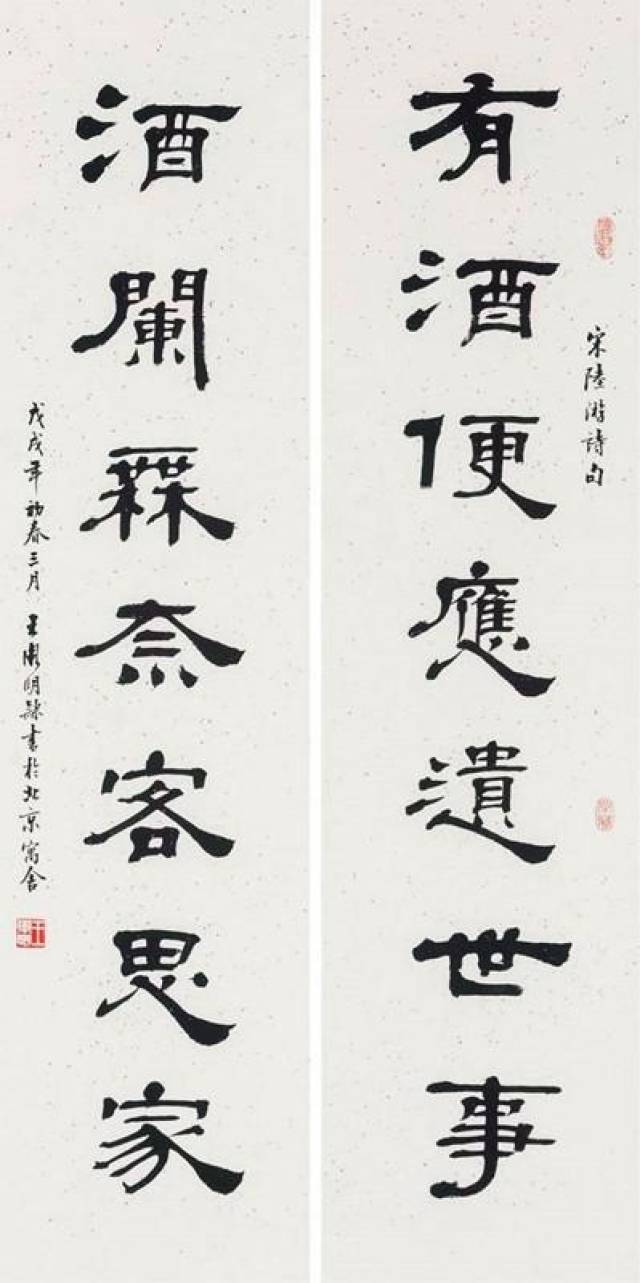 宋陸游詩句
有酒便應遺世事
酒闌無奈客思家
戊戌年初春三月 王明隸書於北京寓舍